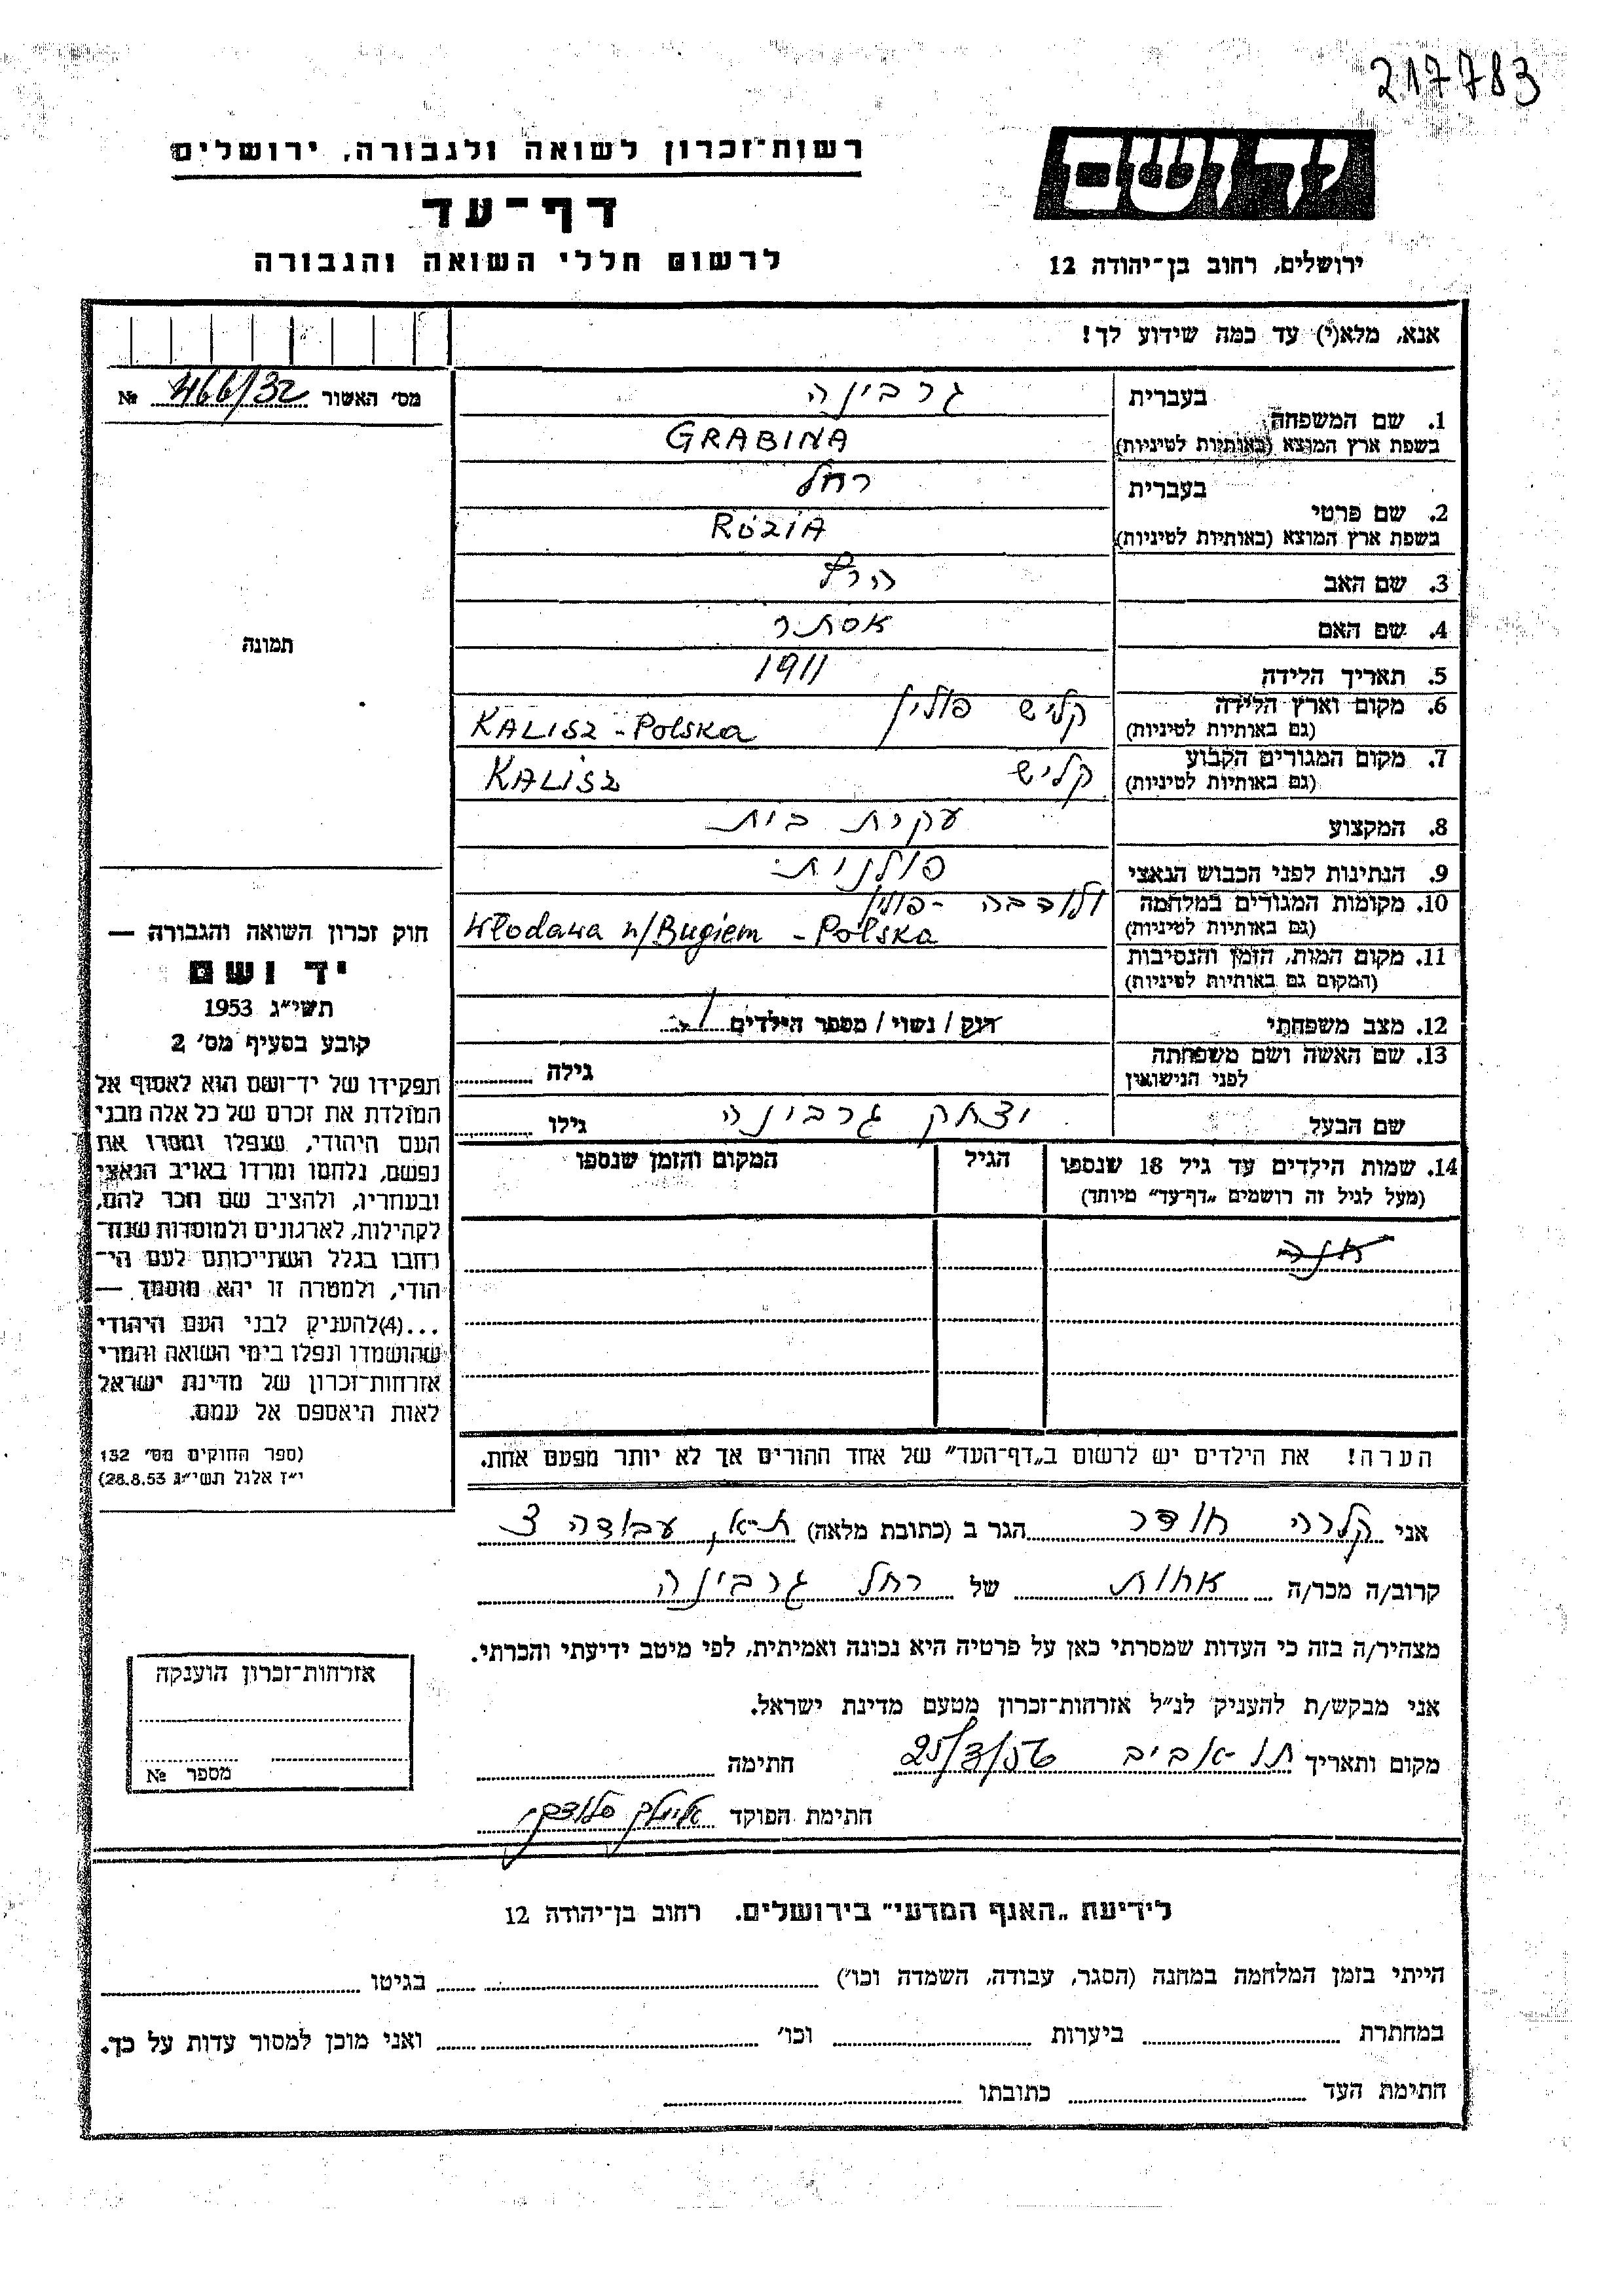 217783
רשות־זכרון לשואה ולגבורה, ירושלים
ידושם
דף־עד
לרשום חללי השואה והגבורה
ירושלים, רחוב בן־יהודה 12
אנא, מלא(י) עד כמה שידוע לך!
מס׳ האשור № 466/32
בעברית גרבינה
1. שם המשפחה
בשפת ארץ המוצא (באותיות לטיניות) GRABINA
בעברית רחל
2. שם פרטי
בשפת ארץ המוצא (באותיות לטיניות) RÓZIA
3. שם האב הרץ
4. שם האם אסתר
תמונה
5. תאריך הלידה 1911
6. מקום וארץ הלידה קליש פולין
(גם באותיות לטיניות) KALISZ - Polska
7. מקום המגורים הקבוע קליש
(גם באותיות לטיניות) KALISZ
8. המקצוע עקרת בית
9. הנתינות לפני הכבוש הנאצי פולנית
10. מקומות המגורים במלחמה ולודבה - פולין
(גם באותיות לטיניות) Włodawa n/Bugiem - Polska
11. מקום המות, הזמן והנסיבות
(המקום גם באותיות לטיניות)
12. מצב משפחתי רוק / נשוי / מספר הילדים 1
13. שם האשה ושם משפחתה
לפני הנישואין גילה
שם הבעל יצחק גרבינה גילו
14. שמות הילדים עד גיל 18 שנספו הגיל המקום והזמן שנספו
(מעל לגיל זה רושמים „דף־עד״ מיוחד)
חוק זכרון השואה והגבורה —
יד ושם
תשי״ג 1953
קובע בסעיף מס׳ 2
תפקידו של יד־ושם הוא לאסוף אל
המולדת את זכרם של כל אלה מבני
העם היהודי, שנפלו ומסרו את
נפשם, נלחמו ומרדו באויב הנאצי
ובעוזריו, ולהציב שם וזכר להם,
לקהילות, לארגונים ולמוסדות שנח־
רחבו בגלל השתייכותם לעם הי־
הודי, ולמטרה זו יהא מוסמך —
...(4)להעניק לבני העם היהודי
שהושמדו ונפלו בימי השואה והמרי
אזרחות־זכרון של מדינת ישראל
לאות היאספם אל עמם.
(ספר החוקים מס׳ 132
י״ז אלול תשי״ג 28.8.53)
הערה! את הילדים יש לרשום ב„דף־העד״ של אחד ההורים אך לא יותר מפעם אחת.
אני קלרה חודר הגר ב (כתובת מלאה) ת-א, עבודה 3
קרוב/ה מכר/ה אחות של רחל גרבינה
מצהיר/ה בזה כי העדות שמסרתי כאן על פרטיה היא נכונה ואמיתית, לפי מיטב ידיעתי והכרתי.
אני מבקש/ת להעניק לנ״ל אזרחות־זכרון מטעם מדינת ישראל.
מקום ותאריך תל-אביב 25/3/56 חתימה
חתימת הפוקד
אזרחות־זכרון הוענקה
מספר №
לידיעת „האגף המדעי״ בירושלים. רחוב בן־יהודה 12
הייתי בזמן המלחמה במחנה (הסגר, עבודה, השמדה וכו׳) בגיטו
במחתרת ביערות וכו׳ ואני מוכן למסור עדות על כך.
חתימת העד כתובתו